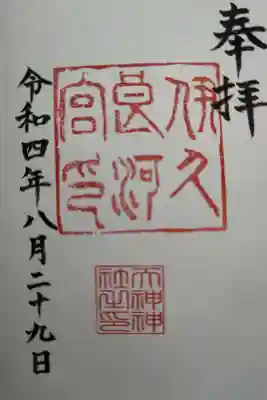 奉拝
伊久
良河
宮印
天神神
社之印
令和四年八月二十九日